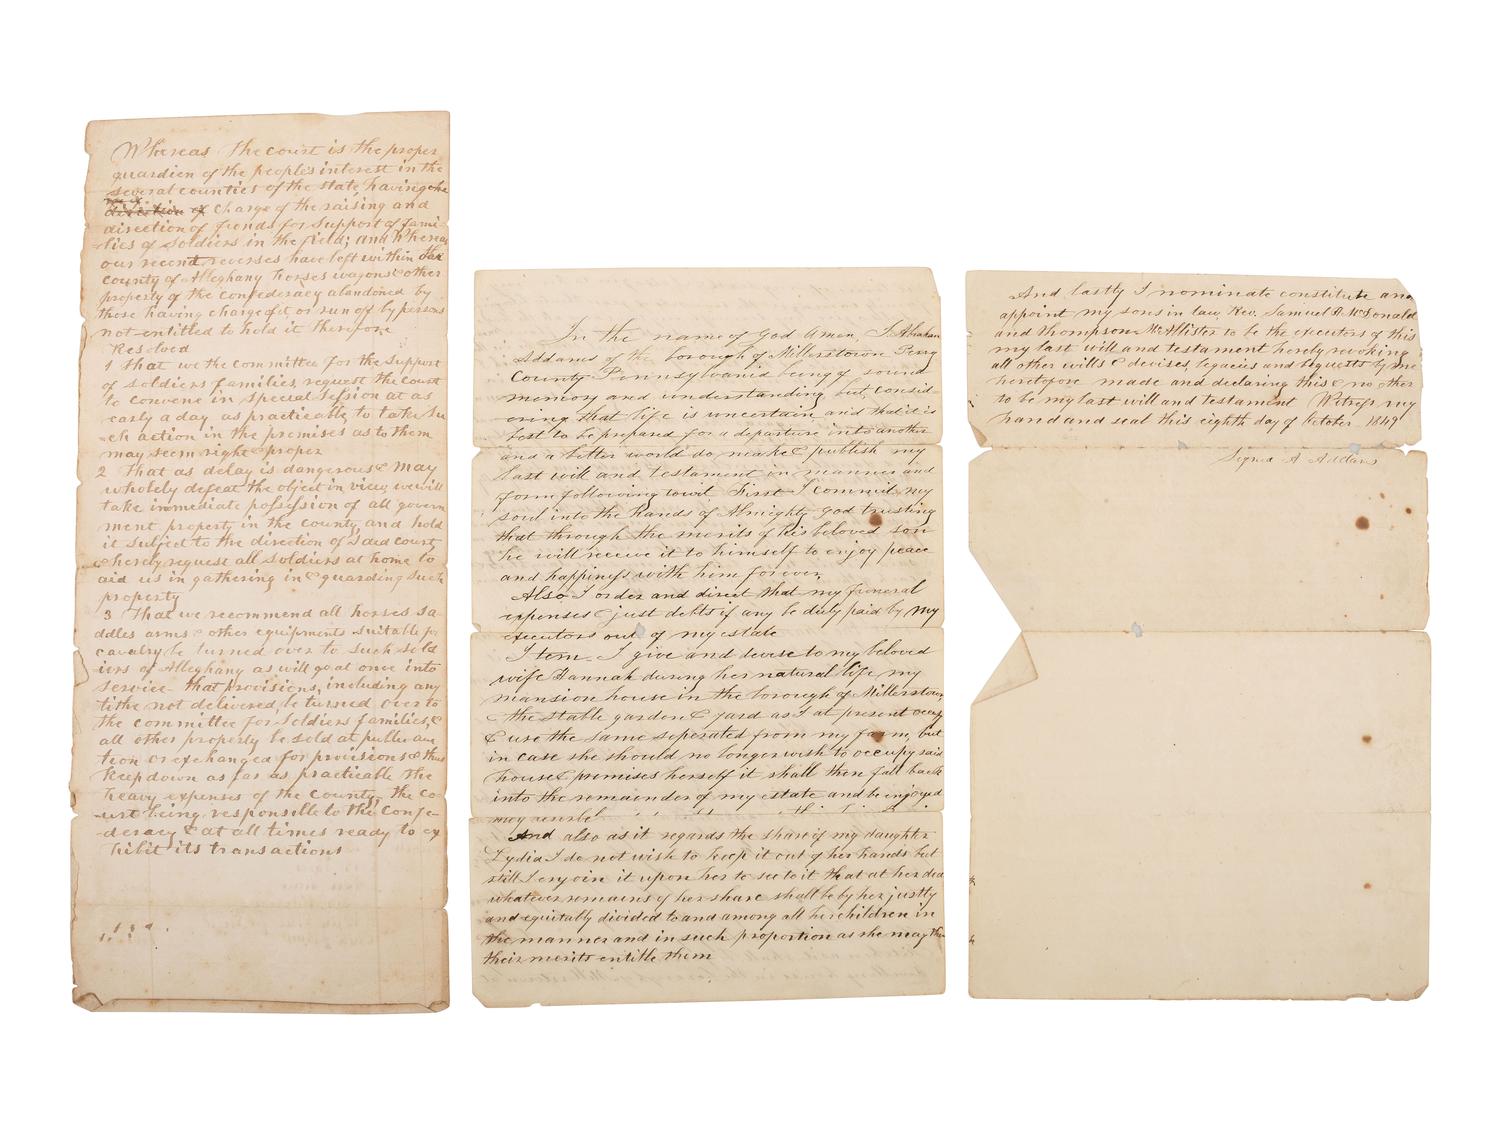 Whereas The court is the proper
guardien of the peoples interest in the
several counties of the state, having the
direction of Charge of the raising and
direction of fonds for support of fami-
lies of Soldiers in the field; and Whereas
our recent reverses have left within the
county of Alleghany horses wagons & other
property of the confederacy abandoned by
those having charge of it, or run of by persons
not entitled to hold it therefore
Resolved
1 That we the committee for the support
of soldiers families, request the court
to convene in special Session at as
early a day as practicable, to take su
-ch action in the premises as to them
may seem right & proper
2 That as delay is dangerous & may
wholely defeat the object in view, we will
take immediate possession of all govern
ment property in the county, and hold
it subject to the direction of said court
& hereby request all soldiers at home to
aid us in gathering in & guarding such
property
3 That we recommend all horses sa-
ddles arms & other equipments suitable for
cavalry be turned over to such sold
iers of Alleghany as will go at once into
service - that provisions, including any
tithe not delivered, be turned over to
the committee for Soldiers families, &
all other property be sold at public auc
tion or exchanged for provisions & thus
keep down as far as practicable the
heavy expenses of the county, the co-
urt being responsible to the Confe-
deracy & at all times ready to ex
hibit its transactions
In the name of God Amen, I Abraham
Addams of the borough of Millerstown Perry
County Pennsylvania being of sound
memory and understanding but, consid
ering that life is uncertain and that it is
best to be prepared for a departure into another
and a better world do make & publish my
last will and testament in manner and
form following to wit First I commit my
soul into the hands of Almighty God trusting
that through the merits of his beloved son
he will receive it to himself to enjoy peace
and happiness with him forever,
Also I order and direct that my funeral
expenses & just debts if any be duly paid by my
executors out of my estate
Item - I give and devise to my beloved
wife Hannah during her natural life my
mansion house in the borough of Millerstown
the stable garden & yard as I at present occupy
& use the same seperated from my farm, but
in case she should no longer wish to occupy said
house & premises herself it shall then fall back
into the remainder of my estate and be enjoyed
And also as it regards the share of my daughter
Lydia I do not wish to keep it out of her hands but
still I enjoin it upon her to see to it that at her death
whatever remains of her share shall be by her justly
and equitably divided to and among all her children in
the manner and in such proportion as she may think
their merits entitle them
And lastly I nominate constitute and
appoint my sons in law, Rev. Samuel B. McDonald
and Thompson McAllister to be the executors of this
my last will and testament hereby revoking
all other wills & devises, legacies and bequests by me
heretofore made and declaring this & no other
to be my last will and testament Witness my
hand and seal this eighth day of October 1849
Signed A Addams